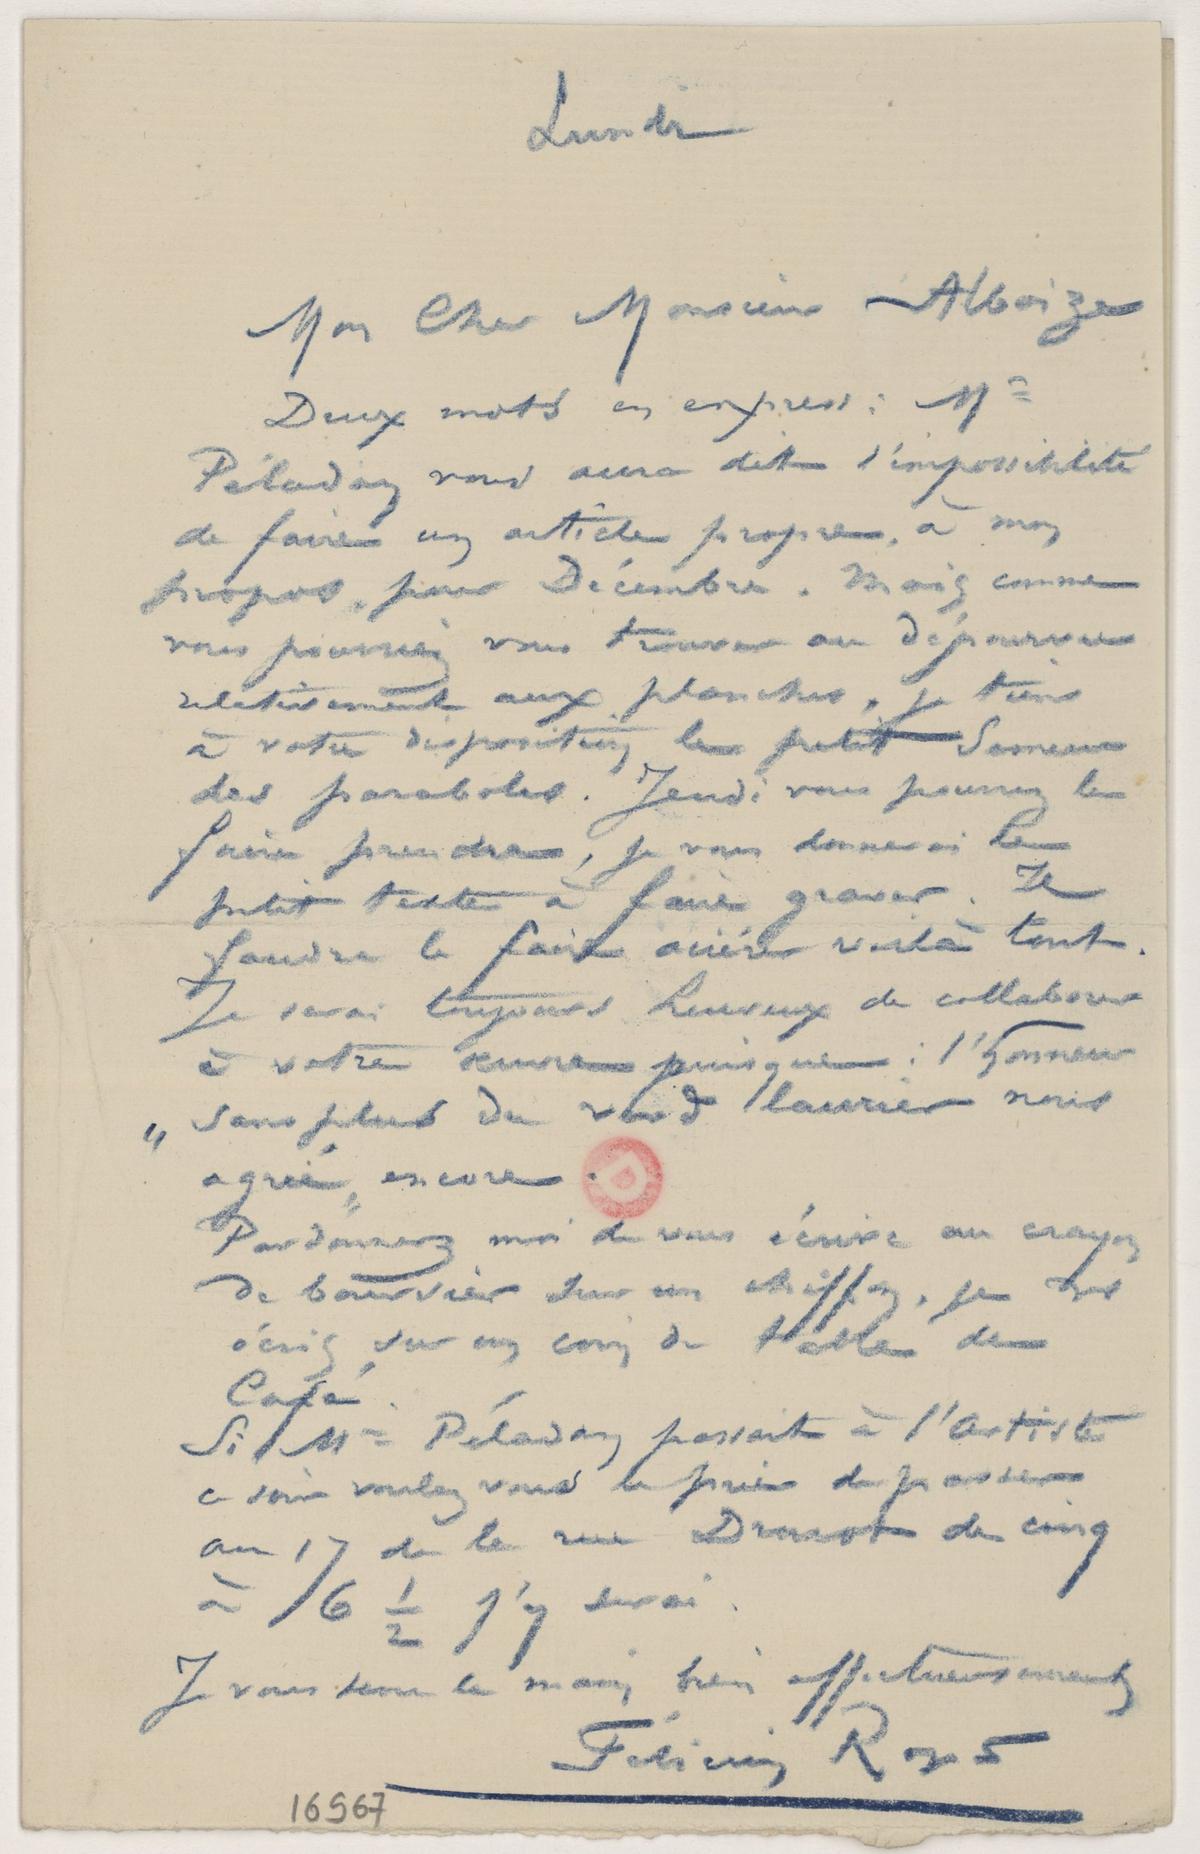 Lundi
Mon Cher Monsieur Alboize
Deux mots en express : Mr
Péladan vous aura dit l'impossibilité
de faire un article propre, à mon
propos, pour Décembre. Mais comme
vous pourriez vous trouver au dépourvu
relativement aux planches, je tiens
à votre disposition le petit Semeur
des paraboles. Jeudi vous pourrez le
faire prendre, je vous donnerai le
petit texte à faire graver. Il
faudra le faire aciérer voilà tout.
Je serai toujours heureux de collaborer
à votre œuvre puisque : l'honneur
sans plus du verd laurier nous
" agrée, " encore.
D
Pardonnez moi de vous écrire au crayon
de boursier sur un chiffon, je vous
écris sur un coin de table de
Café.
Si Mr Péladan passait à l'Artiste
ce soir voulez vous le prier de passer
au 17 de la rue Drouot de cinq
à 6 1/2 j'y serai.
Je vous serre la main bien affectueusement
Félicien Rops
16967